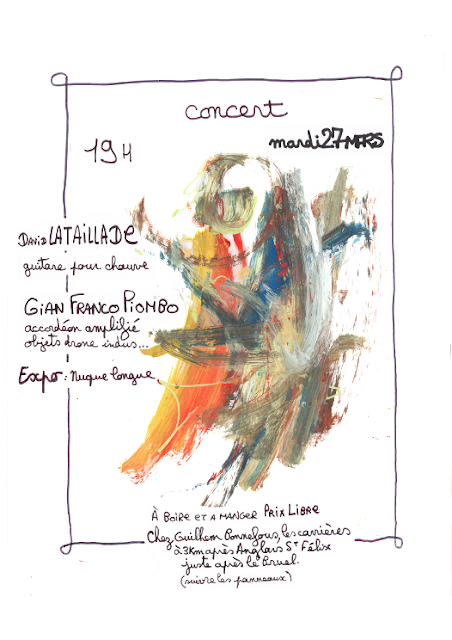 concert
mardi 27 MARS
19H
DAVID LATAILLADE
guitare pour chauve
GIAN FRANCO PIOMBO
accordéon amplifié
objets drone indus...
Expo : Nuque longue
À BOIRE ET A MANGER PRIX LIBRE
Chez Guilhem Bonnefous, les carrières
à 3Km après Anglars St Félix
juste après le Bruel.
(suivre les panneaux)